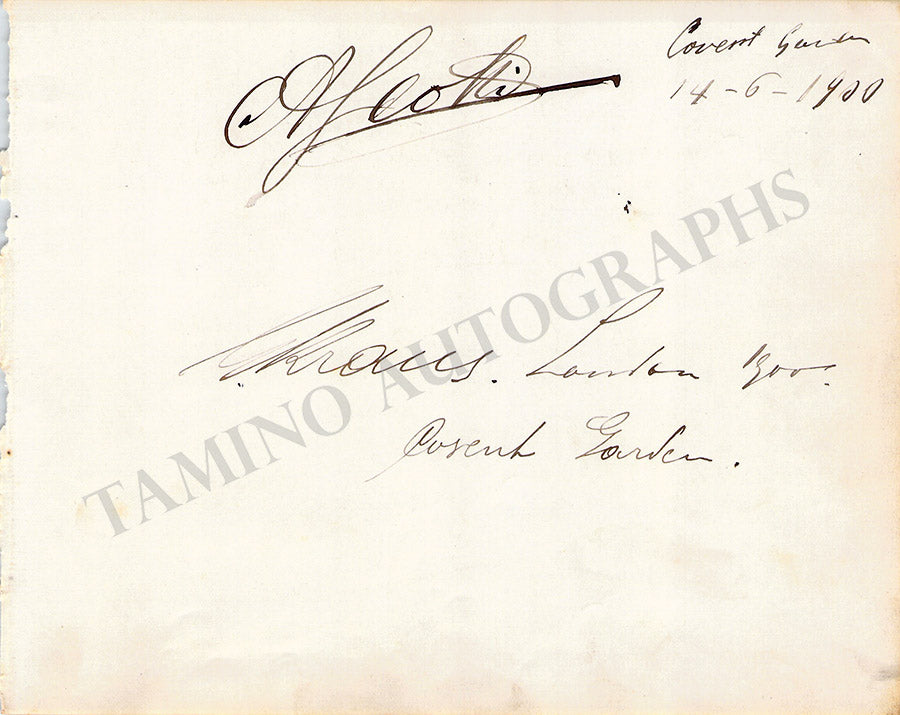 AScotti
Covent Garden
14-6-1900
EKraus. London 1900.
Covent Garden.
TAMINO AUTOGRAPHS